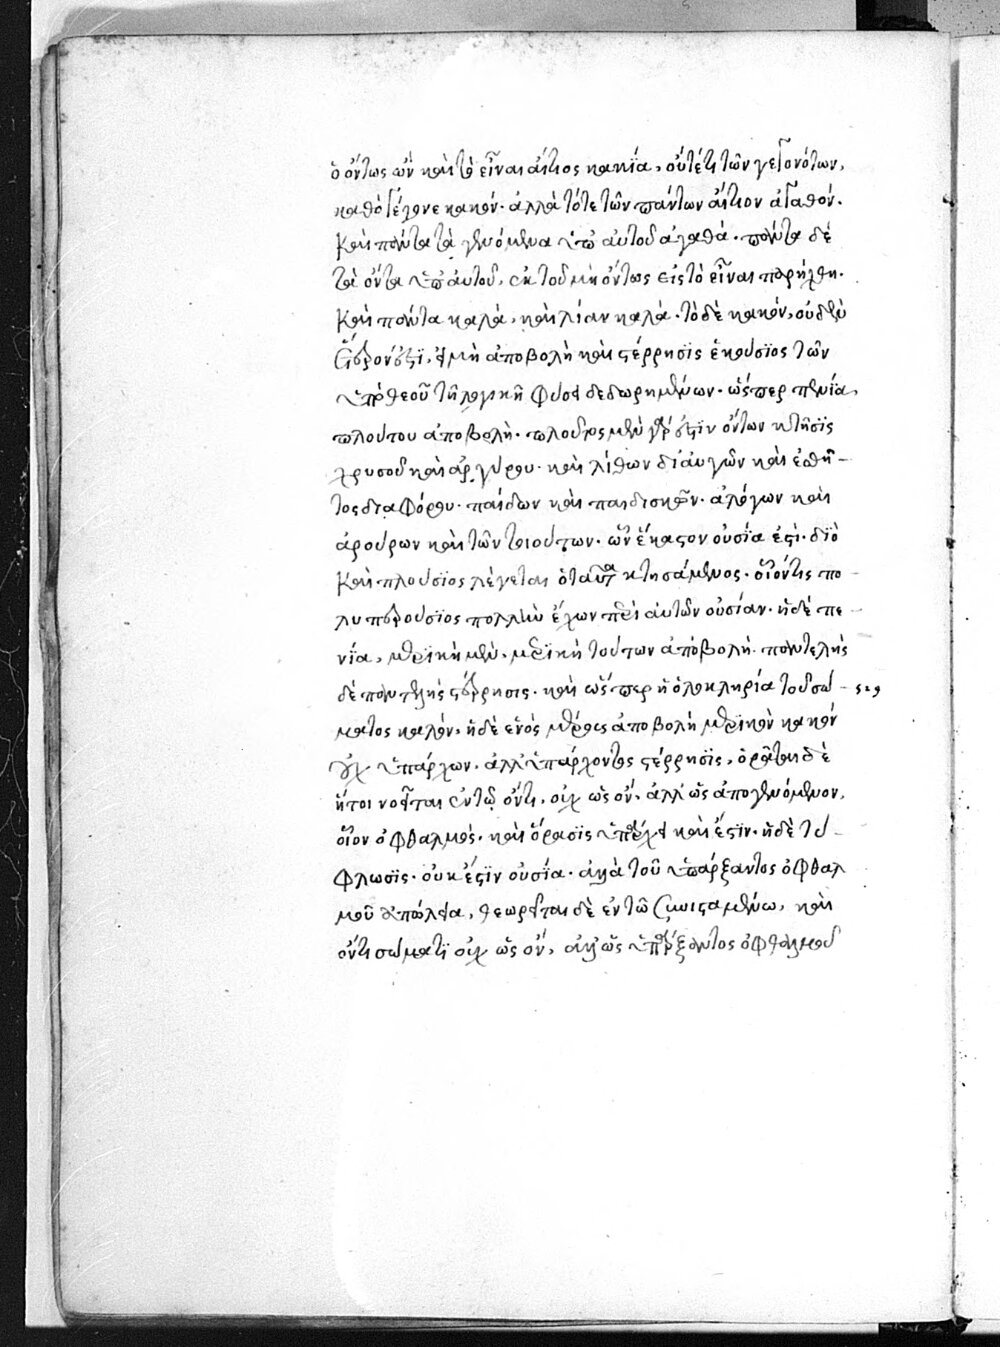 ὁ ὄντως ὢν καὶ τὸ εἶναι αἴτιος κακία, οὔτέ τι τῶν γεγονότων,
καθὸ γέγονε κακόν· ἀλλὰ τότε τῶν πάντων αἴτιον ἀγαθόν·
καὶ πάντα τὰ γενόμενα ὑπ' αὐτοῦ ἀγαθά· πάντα δὲ
τὰ ὄντα ὑπ' αὐτοῦ, ἐκ τοῦ μὴ ὄντως εἰς τὸ εἶναι παρήχθη·
καὶ πάντα καλὰ, καὶ λίαν καλά· τὸ δὲ κακόν, οὐδὲν
ἕτερόν ἐστι, εἰ μὴ ἀποβολὴ καὶ στέρρησϊς ἑκούσϊος τῶν
ὑπὸ θεοῦ τῇ λογικῇ φύσει δεδωρημένων· ὥσπερ πενία,
πλούτου ἀποβολή· πλοῦτος μὲν γάρ ἐστϊν ὄντων κτῆσϊς
χρυσοῦ καὶ ἀργύρου· καὶ λίθων διαυγῶν καὶ ἐσθῆ-
τος διαφόρου· παίδων καὶ παιδισκῶν· ἀλόγων καὶ
ἀρούρων καὶ τῶν τοιούτων· ὧν ἕκαστον οὐσία ἐστὶ· διὸ
καὶ πλούσϊος λέγεται ὁ ταῦτα κτησάμενος· οἷόν τις πο-
λυπερούσϊος πολλὴν ἔχων περὶ αὐτὸν οὐσίαν· ἡ δὲ πε-
νΐα, μερϊκὴ μὲν, μερϊκὴ τούτων ἀποβολή· παντελὴς
δὲ παντελὴς στέρρησις· καὶ ὥσπερ ἡ ὁλοκληρία τοῦ σώ-
ματος καλόν, ἡ δὲ ἑνὸς μέρους ἀποβολὴ μερϊκὸν κακόν
οὐχ ὑπάρχων, ἀλλ' ὑπάρχοντος στέρρησϊς, ὁρᾶται δὲ
ἤτοι νοεῖται ἐν τῷ ὄντι, οὐχ ὡς ὄν, ἀλλ' ὡς ἀπογενόμενον,
οἷον ὀφθαλμὸς, καὶ ὅρασϊς ὑπάρχει καὶ ἔστϊν· ἡ δὲ τύ-
φλωσϊς, οὐκ ἔστϊν οὐσία· ἀλλὰ τοῦ ὑπάρξαντος ὀφθαλ
μοῦ ἀπώλεια, θεωρεῖται δὲ ἐν τῷ
ὄντι σώματϊ οὐχ ὡς ὄν, ἀλλ' ὡς ὑπάρξαντος ὀφθαλμοῦ